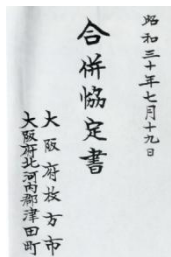 昭和三十年七月十九日
合併協定書
大阪府枚方市
大阪府北河内郡津田町